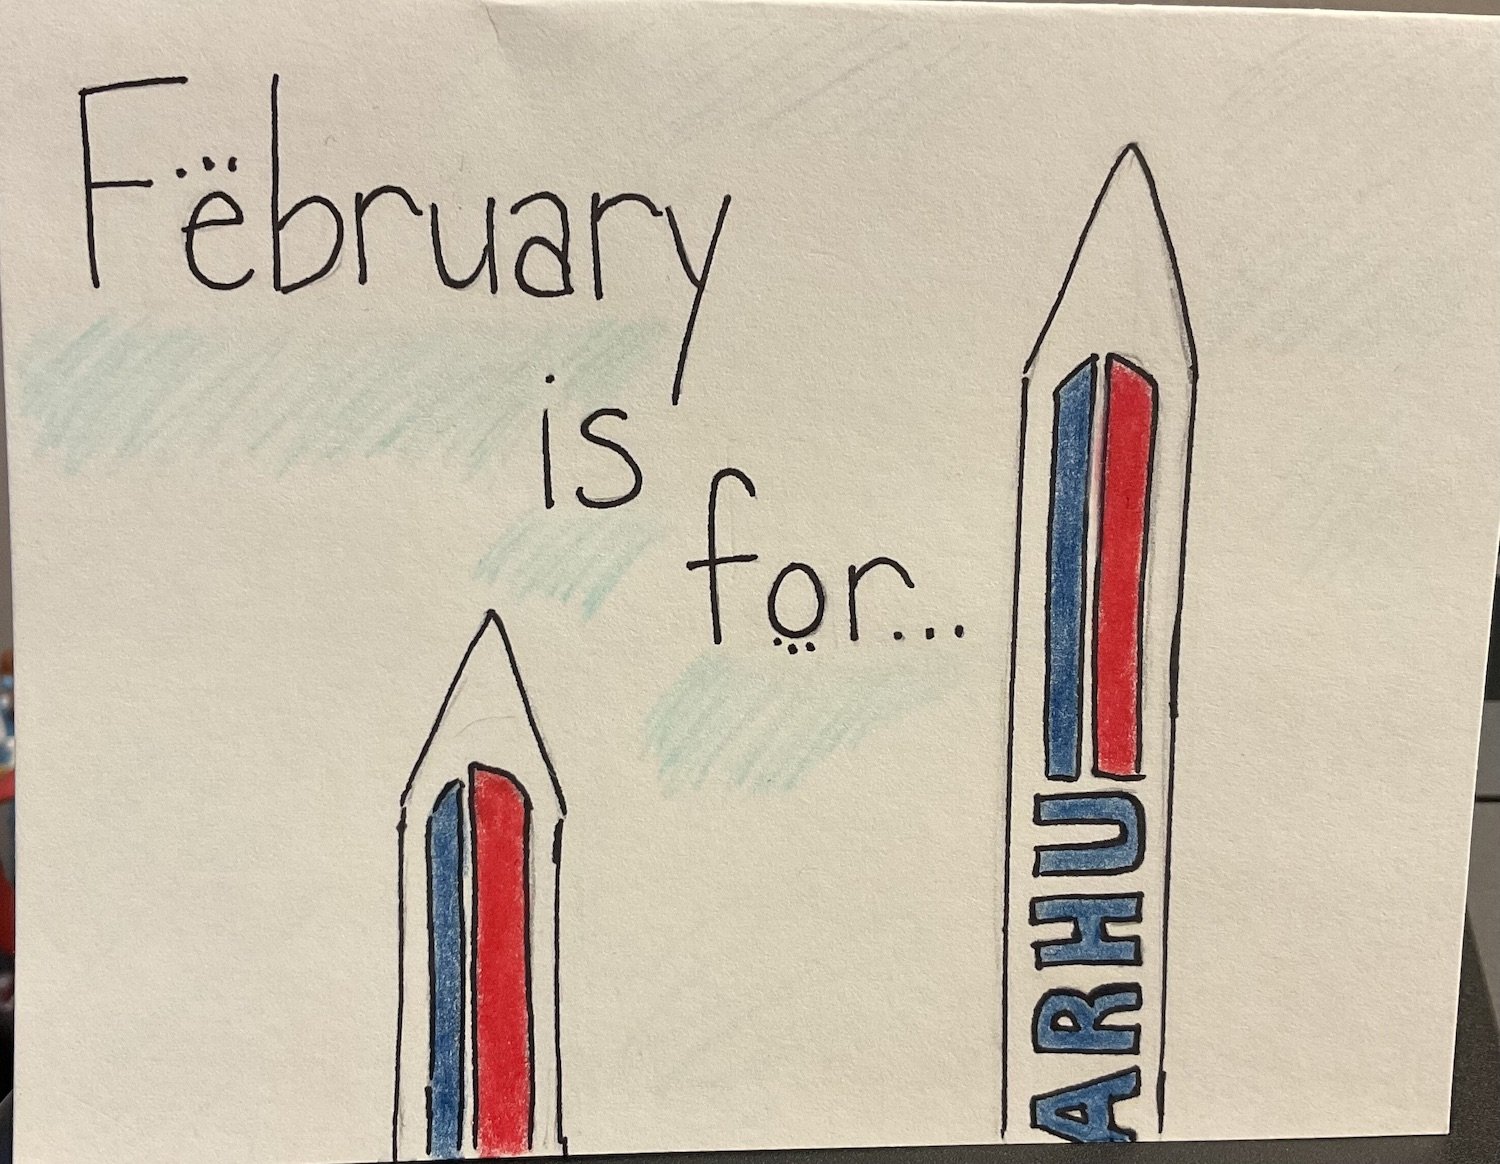 February
is
for...
ARHU